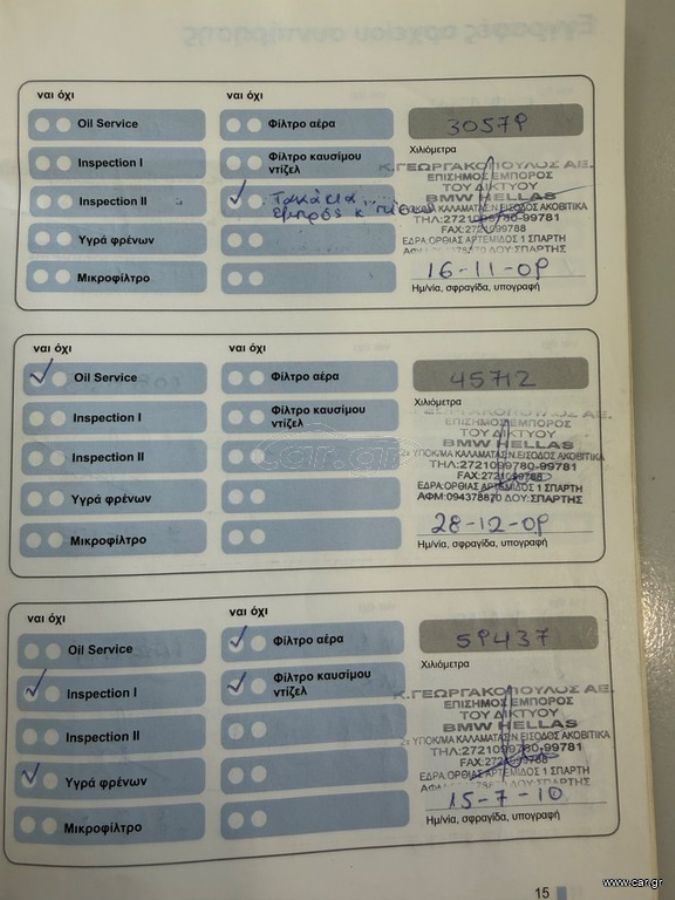 ναι όχι
ναι όχι
Oil Service
Φίλτρο αέρα
30579
Χιλιόμετρα
Inspection I
Φίλτρο καυσίμου
ντίζελ
Κ.ΓΕΩΡΓΑΚΟΠΟΥΛΟΣ ΑΕ.
ΕΠΙΣΗΜΟΣ ΕΜΠΟΡΟΣ
ΤΟΥ ΔΙΚΤΥΟΥ
BMW HELLAS
Inspection II
Τακάκια
εμπρός κ πίσω
ΚΑΛΑΜΑΤΑΣ:Ν.ΕΙΣΟΔΟΣ ΑΚΟΒΙΤΙΚΑ
ΤΗΛ:2721099780-99781
FAX:2721099788
ΕΔΡΑ:ΟΡΘΙΑΣ ΑΡΤΕΜΙΔΟΣ 1 ΣΠΑΡΤΗ
ΔΟΥ:ΣΠΑΡΤΗΣ
Υγρά φρένων
Μικροφίλτρο
16-11-09
Ημ/νία, σφραγίδα, υπογραφή
ναι όχι
ναι όχι
Oil Service
Φίλτρο αέρα
45712
Χιλιόμετρα
Inspection I
Φίλτρο καυσίμου
ντίζελ
ΕΠΙΣΗΜΟΣ ΕΜΠΟΡΟΣ
ΤΟΥ ΔΙΚΤΥΟΥ
BMW HELLAS
Inspection II
car.gr
2ο ΥΠΟΚ/ΜΑ ΚΑΛΑΜΑΤΑΣ:Ν.ΕΙΣΟΔΟΣ ΑΚΟΒΙΤΙΚΑ
ΤΗΛ:2721099780-99781
FAX:2721099788
ΕΔΡΑ:ΟΡΘΙΑΣ ΑΡΤΕΜΙΔΟΣ 1 ΣΠΑΡΤΗ
ΑΦΜ:094378870 ΔΟΥ:ΣΠΑΡΤΗΣ
Υγρά φρένων
Μικροφίλτρο
28-12-09
Ημ/νία, σφραγίδα, υπογραφή
ναι όχι
ναι όχι
Oil Service
Φίλτρο αέρα
59437
Χιλιόμετρα
Inspection I
Φίλτρο καυσίμου
ντίζελ
Κ.ΓΕΩΡΓΑΚΟΠΟΥΛΟΣ ΑΕ.
ΕΠΙΣΗΜΟΣ ΕΜΠΟΡΟΣ
ΤΟΥ ΔΙΚΤΥΟΥ
BMW HELLAS
Inspection II
2ο ΥΠΟΚ/ΜΑ ΚΑΛΑΜΑΤΑΣ:Ν.ΕΙΣΟΔΟΣ ΑΚΟΒΙΤΙΚΑ
ΤΗΛ:2721099780-99781
FAX:2721099788
ΕΔΡΑ:ΟΡΘΙΑΣ ΑΡΤΕΜΙΔΟΣ 1 ΣΠΑΡΤΗ
ΔΟΥ:ΣΠΑΡΤΗΣ
Υγρά φρένων
15-7-10
Μικροφίλτρο
Ημ/νία, σφραγίδα, υπογραφή
15
www.car.gr